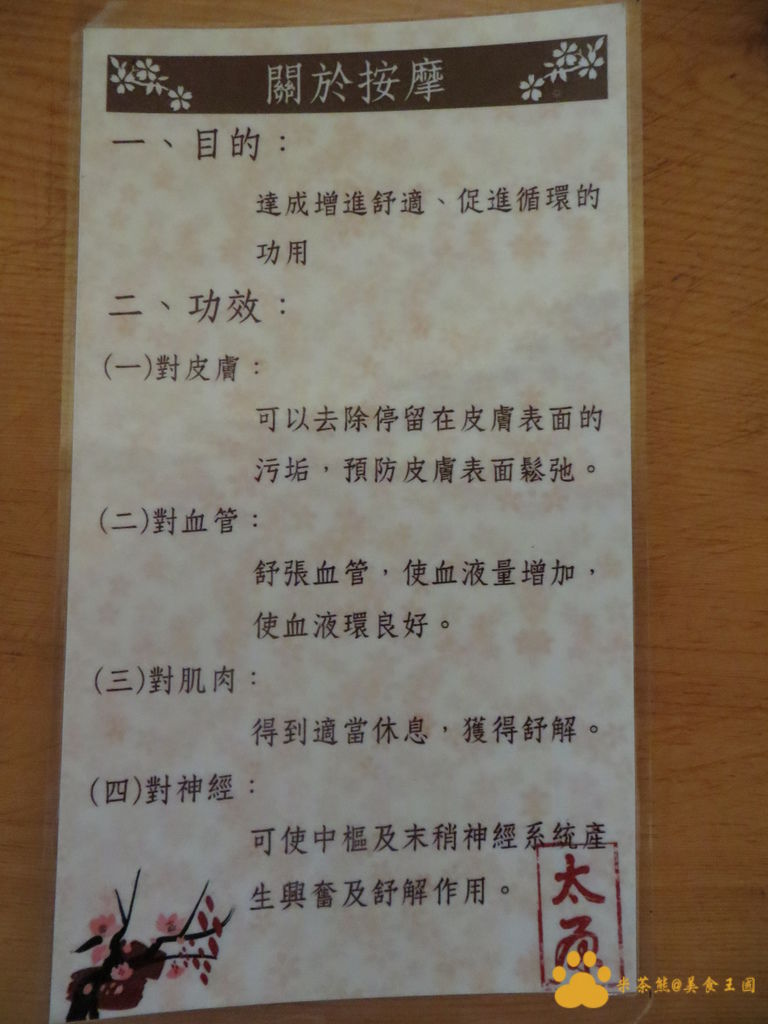 關於按摩
一、目的：
達成增進舒適、促進循環的
功用
二、功效：
(一)對皮膚：
可以去除停留在皮膚表面的
污垢，預防皮膚表面鬆弛。
(二)對血管：
舒張血管，使血液量增加，
使血液環良好。
(三)對肌肉：
得到適當休息，獲得舒解。
(四)對神經：
可使中樞及末稍神經系統產
生興奮及舒解作用。
太
米茶熊@美食王國